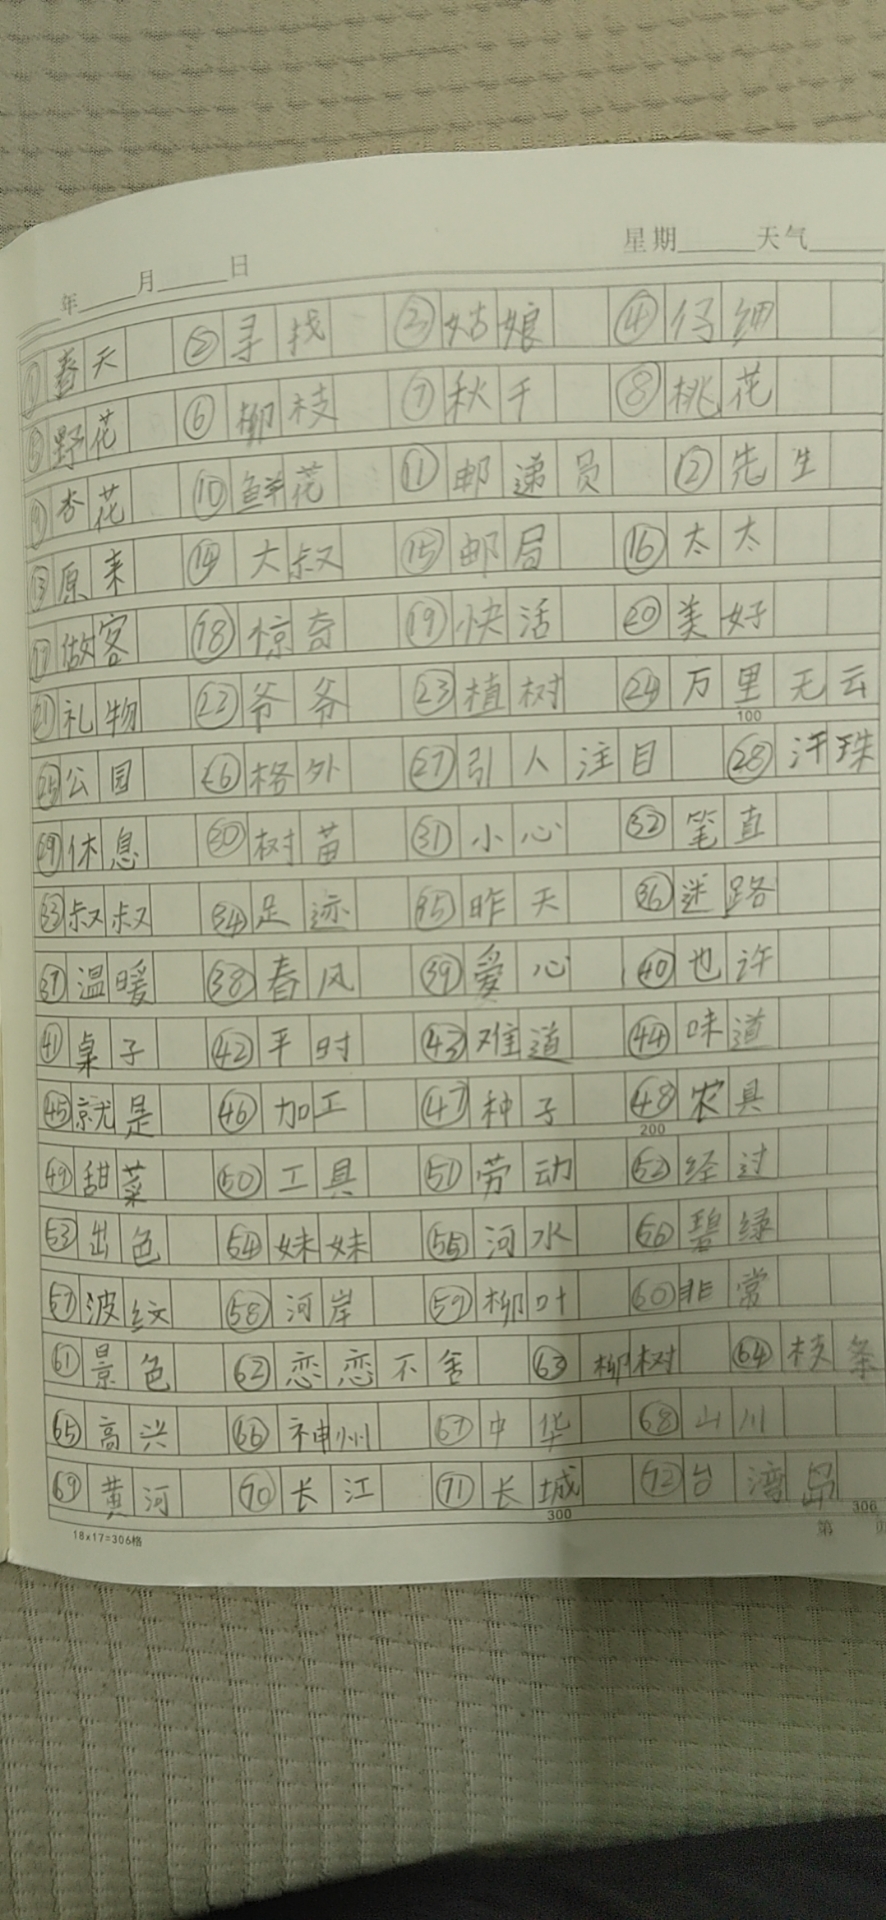 年 月 日 星期 天气
①春天 ②寻找 ③姑娘 ④仔细
⑤野花 ⑥柳枝 ⑦秋千 ⑧桃花
⑨杏花 ⑩鲜花 ⑪邮递员 ⑫先生
⑬原来 ⑭大叔 ⑮邮局 ⑯太太
⑰做客 ⑱惊奇 ⑲快活 ⑳美好
㉑礼物 ㉒爷爷 ㉓植树 ㉔万里无云
100
㉕公园 ㉖格外 ㉗引人注目 ㉘汗珠
㉙休息 ㉚树苗 ㉛小心 ㉜笔直
㉝叔叔 ㉞足迹 ㉟昨天 ㊱迷路
㊲温暖 ㊳春风 ㊴爱心 ㊵也许
㊶桌子 ㊷平时 ㊸难道 ㊹味道
㊺就是 ㊻加工 ㊼种子 ㊽农具
200
㊾甜菜 ㊿工具 51劳动 52经过
53出色 54妹妹 55河水 56碧绿
57波纹 58河岸 59柳叶 60非常
61景色 62恋恋不舍 63柳树 64枝条
65高兴 66神州 67中华 68山川
69黄河 70长江 71长城 72台湾岛
300 306
18×17=306格 第